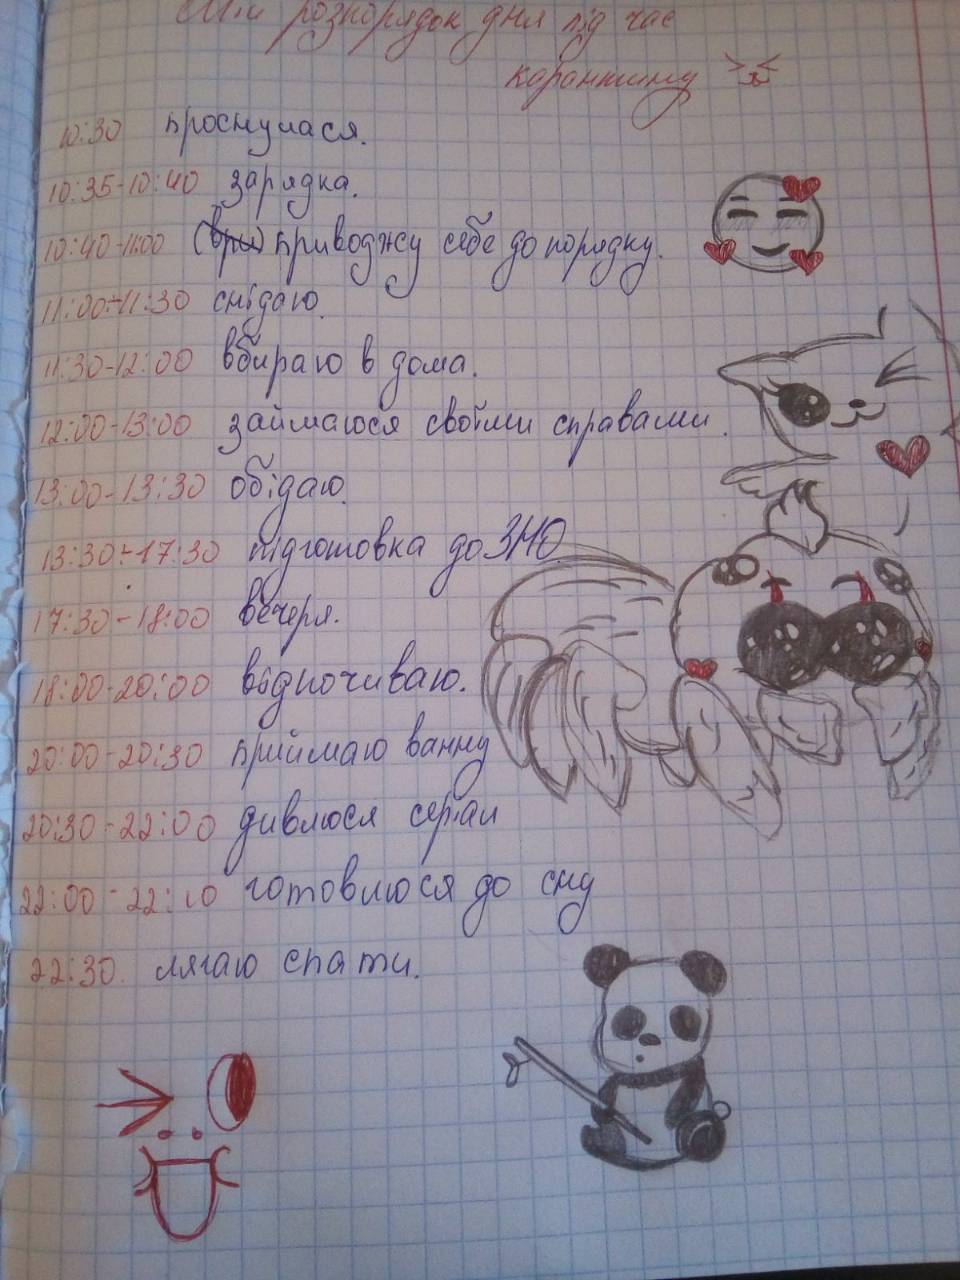 Мій розпорядок дня під час
карантину
10:30 проснулася.
10:35-10:40 зарядка.
10:40-11:00 приводжу себе до порядку.
11:00-11:30 снідаю.
11:30-12:00 вбираю в дома.
12:00-13:00 займаюся своїми справами.
13:00-13:30 обідаю.
13:30-17:30 підготовка до ЗНО.
17:30-18:00 вечеря.
18:00-20:00 відпочиваю.
20:00-20:30 приймаю ванну
20:30-22:00 дивлюся серіал
22:00-22:10 готовлюся до сну
22:30. лягаю спати.